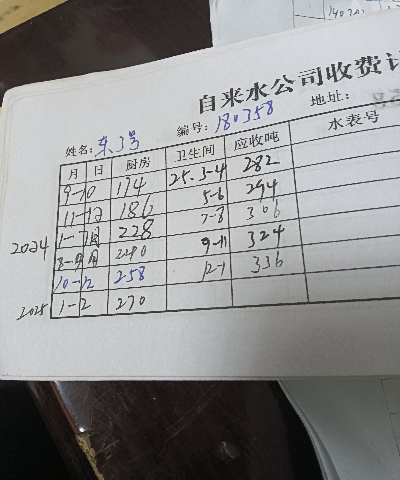 140
自来水公司收费计
姓名: 东3号 编号: 180358 地址:
月 日 厨房 卫生间 应收吨 水表号
9-10 174 25.3-4 282
11-12 186 5-6 294
2024 1-7月 228 7-8 306
8-9月 240 9-11 324
10-12 258 12-1 336
2025 1-2 270